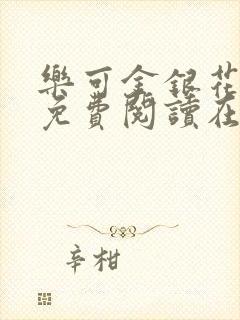 樂可金銀花
免費閱讀在
辛柑